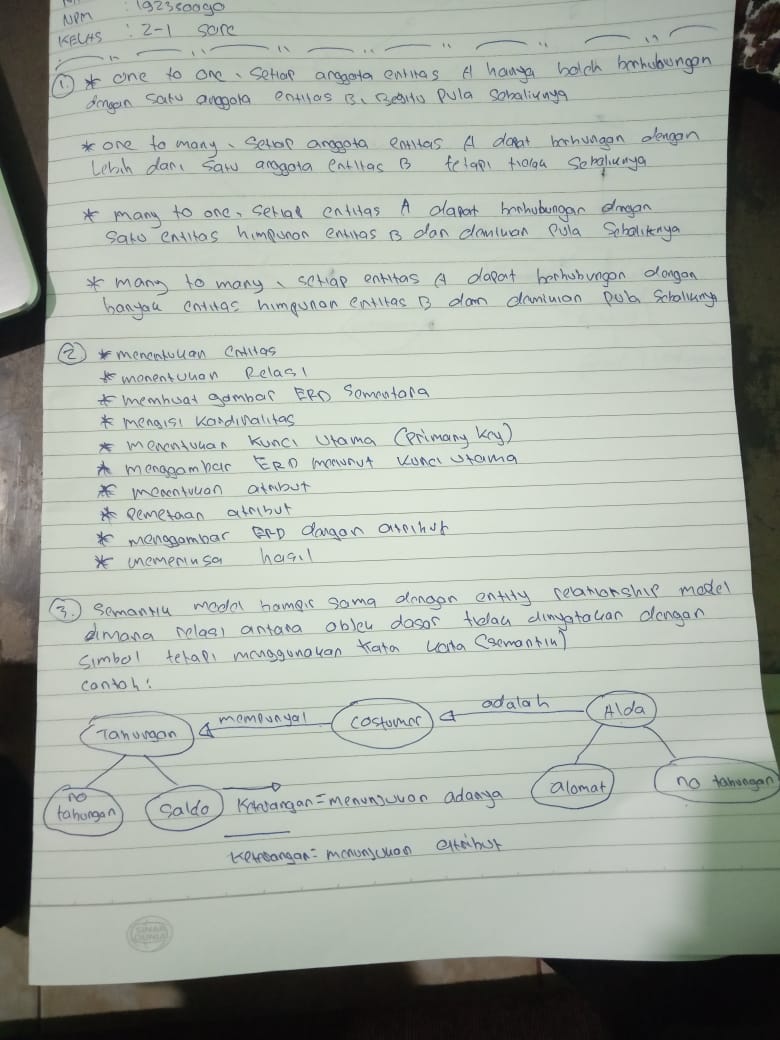 NPM : 192350090
KELAS : 2-1 sore
1. * one to one, Setiap anggota entitas A hanya boleh berhubungan
dengan satu anggota entitas B, Begitu Pula Sebaliknya
* one to many, Setiap anggota entitas A dapat berhungan dengan
Lebih dari satu anggota entitas B tetapi tidak Sebaliknya
* many to one, Setiap entitas A dapat berhubungan dengan
Satu entitas himpunan entitas B dan demikian Pula Sebaliknya
* many to many, setiap entitas A dapat berhubungan dengan
banyak entitas himpunan entitas B dan demikian Pula Sebaliknya
2 * menentukan entitas
* menentukan Relasi
* membuat gambar ERD Sementara
* mengisi Kardinalitas
* menentukan Kunci Utama (Primary Key)
* menggambar ERD menurut Kunci Utama
* menentukan atribut
* Pemetaan atribut
* menggambar ERD dengan atribut
* memeriksa hasil
3. Semantik model hampir sama dengan entity relationship model
dimana relasi antara objek dasar tidak dinyatakan dengan
Simbol tetapi menggunakan kata kata (semantik)
Contoh:
Tabungan mempunyai Costumer adalah Alda
no tabungan Saldo alamat no tabungan
Keterangan = menunjukan adanya
Keterangan = menunjukan attribut
SINAR DUNIA